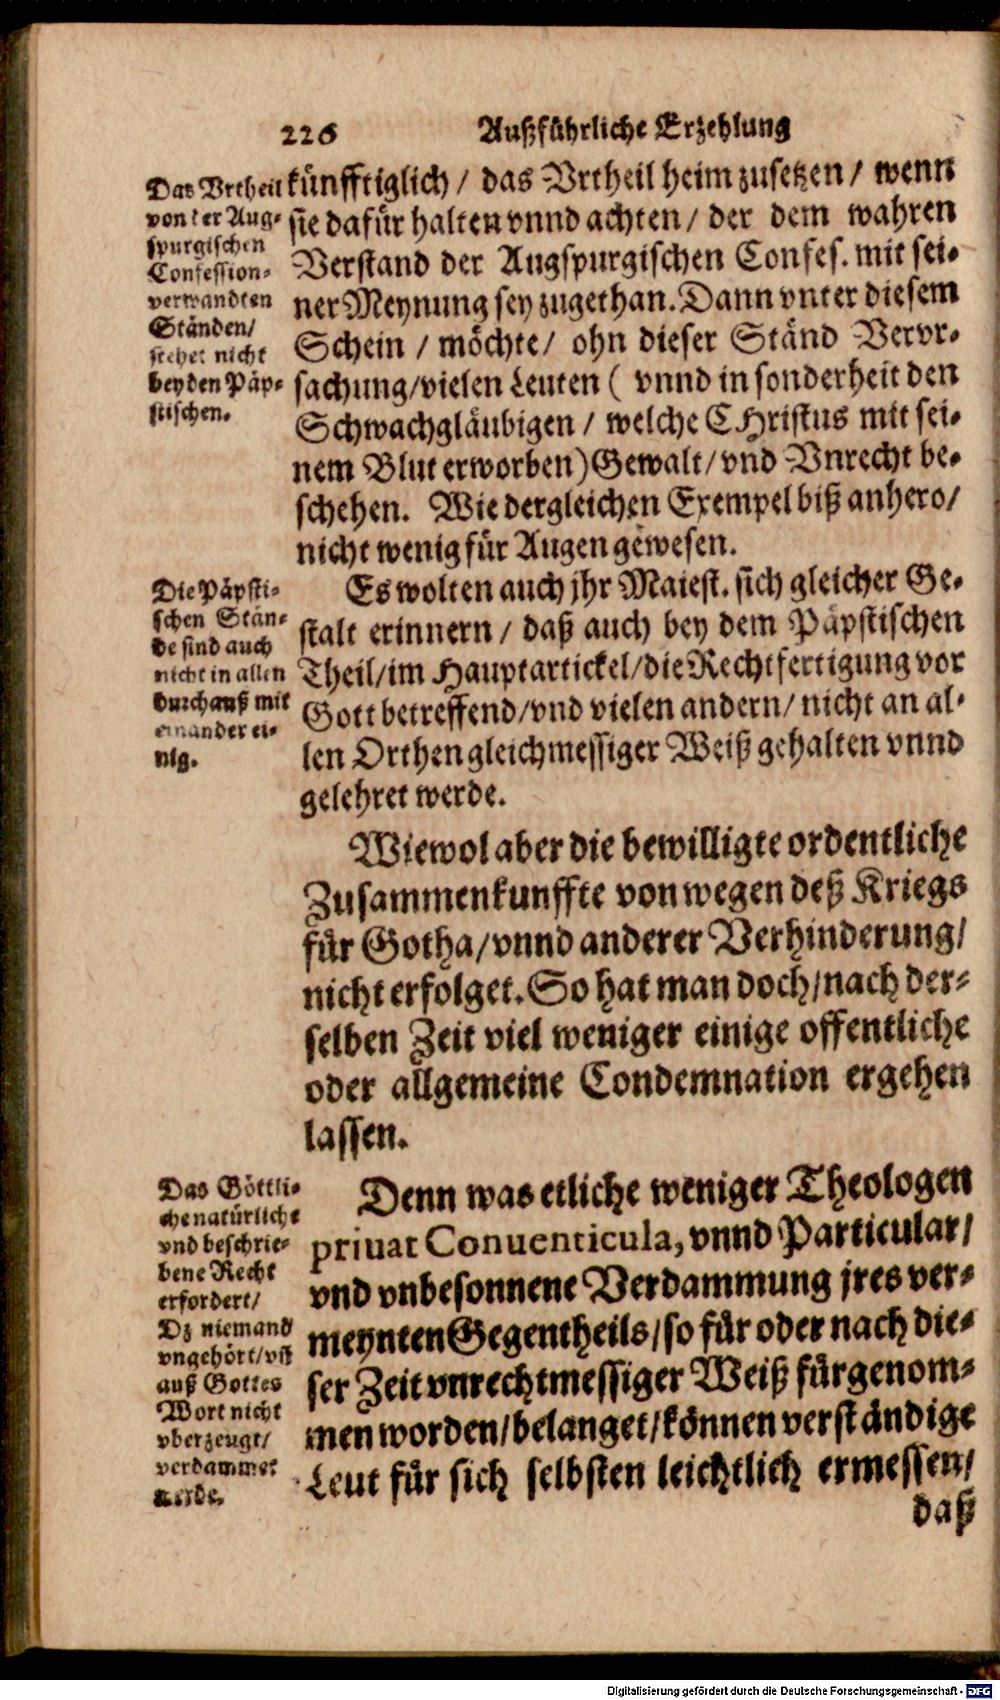 226 Außführliche Erzehlung
Das Vrtheil
von der Aug-
spurgischen
Confession-
verwandten
Ständen/
stehet nicht
bey den Päp-
stischen.
künfftiglich / das Vrtheil heim zusetzen / wenn
sie dafür halten vnnd achten / der dem wahren
Verstand der Augspurgischen Confes. mit sei-
ner Meynung sey zugethan. Dann vnter diesem
Schein / möchte / ohn dieser Ständ Vervr-
sachung/vielen Leuten ( vnnd in sonderheit den
Schwachgläubigen / welche CHristus mit sei-
nem Blut erworben) Gewalt/ vnd Vnrecht be-
schehen. Wie dergleichen Exempel biß anhero/
nicht wenig für Augen gewesen.
Die Päpsti-
schen Stän-
de sind auch
nicht in allen
durchauß mit
einander ei-
nig.
Es wolten auch jhr Maiest. sich gleicher Ge-
stalt erinnern / daß auch bey dem Päpstischen
Theil/im Hauptartickel/die Rechtfertigung vor
Gott betreffend/vnd vielen andern/ nicht an al-
len Orthen gleichmessiger Weiß gehalten vnnd
gelehret werde.
Wiewol aber die bewilligte ordentliche
Zusammenkunffte von wegen deß Kriegs
für Gotha/vnnd anderer Verhinderung/
nicht erfolget. So hat man doch/nach der-
selben Zeit viel weniger einige offentliche
oder allgemeine Condemnation ergehen
lassen.
Das Göttli-
che natürliche
vnd beschrie-
bene Recht
erfordert/
Dz niemand
vngehört/vñ
auß Gottes
Wort nicht
vberzeugt/
verdammet
werde.
Denn was etliche weniger Theologen
priuat Conuenticula, vnnd Particular/
vnd vnbesonnene Verdammung jres ver-
meynten Gegentheils/so für oder nach die-
ser Zeit vnrechtmessiger Weiß fürgenom-
men worden/belanget/können verständige
Leut für sich selbsten leichtlich ermessen/
daß
Digitalisierung gefördert durch die Deutsche Forschungsgemeinschaft - DFG